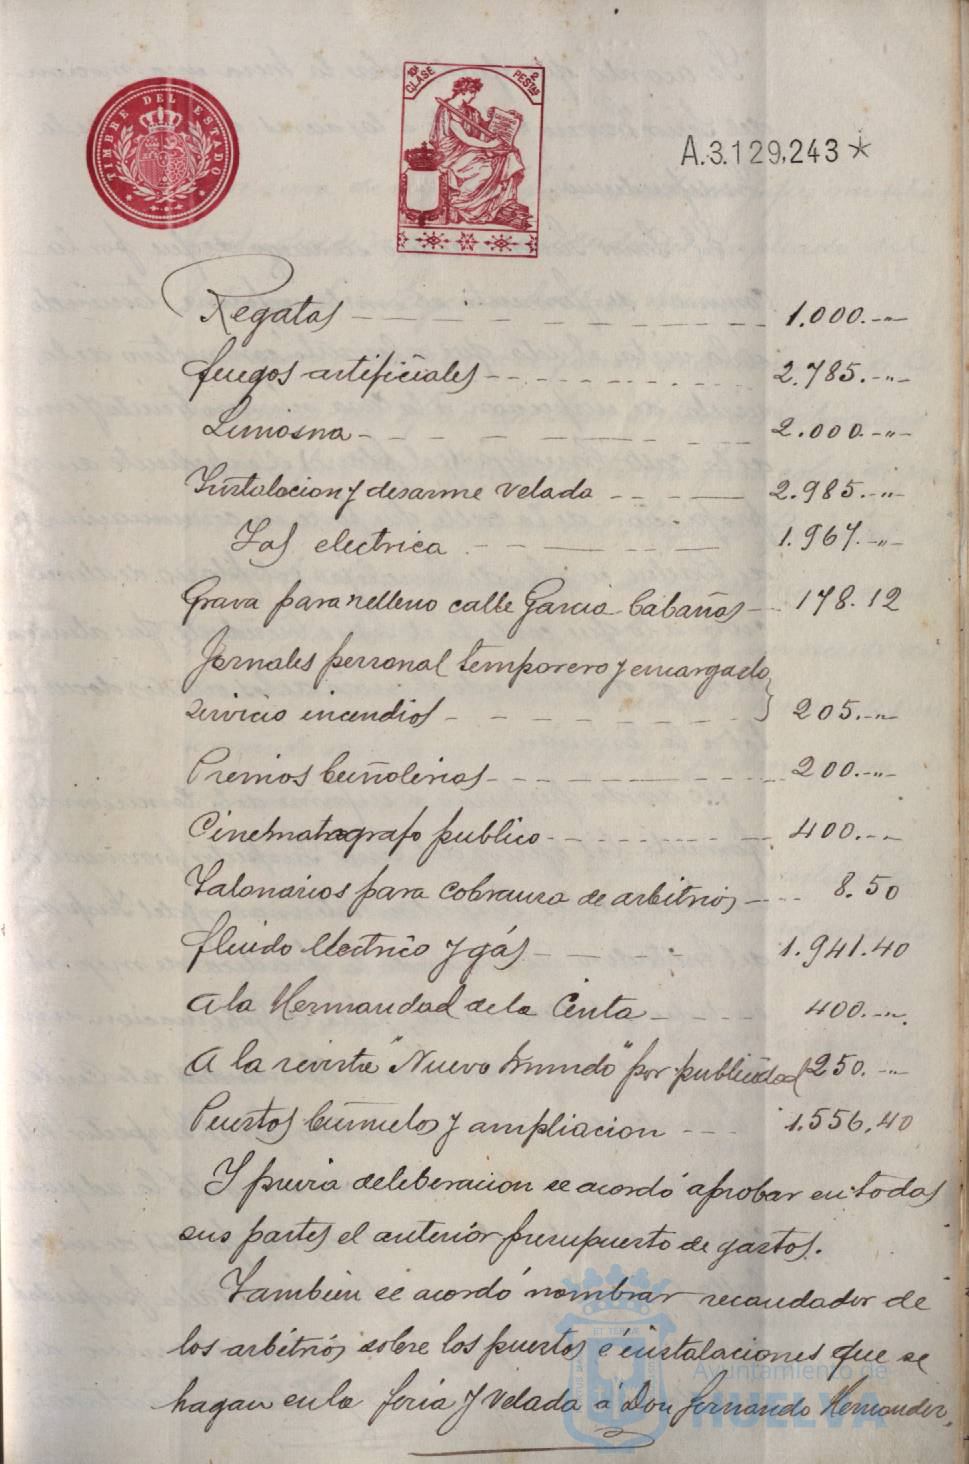 TIMBRE DEL ESTADO
10ª CLASE
2 PESTAS
A.3.129,243 *
Regatas 1.000.-"-
fuegos artificiales 2.785.-"-
Limosna 2.000.-"-
Instalacion y desarme velada 2.985.-"-
electrica 1.967.-"-
Grava para relleno calle Garcia Cabañas 178.12
Jornales personal temporero y encargado
servicio incendios 205.-"-
Premios buñolerias 200.-"-
Cinematografo publico 400.-"-
Talonarios para cobranza de arbitrios 8.50
fluido electrico y gás 1.941.40
A la Hermandad de la Cinta 400.-"-
A la revista "Nuevo Mundo" por publicidad 250.-"-
Puestos buñuelos y ampliacion 1.556,40
Y previa deliberacion se acordó aprobar en todas
sus partes el anterior presupuesto de gastos.
Tambien se acordó nombrar recaudador de
los arbitrios sobre los puestos é instalaciones que se
hagan en la feria y velada á Don fernando Hernandez,
Ayuntamiento de
HUELVA